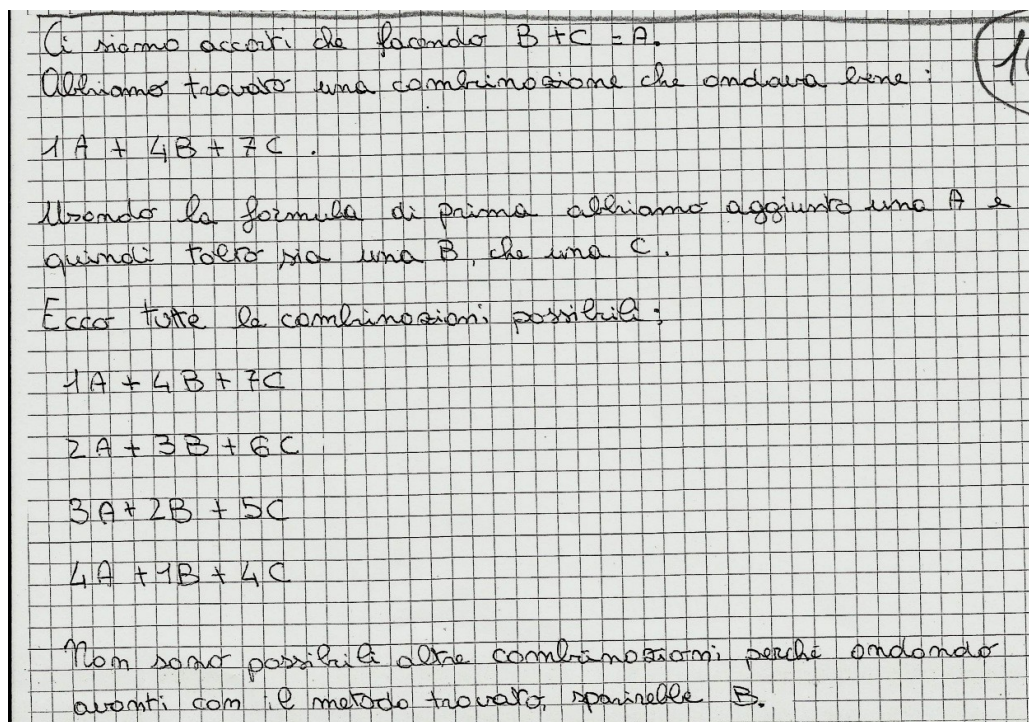 Ci siamo accorti che facendo B + C = A.
Abbiamo trovato una combinazione che andava bene:
1A + 4B + 7C.
Usando la formula di prima abbiamo aggiunto una A e
quindi tolto sia una B, che una C.
Ecco tutte le combinazioni possibili:
1A + 4B + 7C
2A + 3B + 6C
3A + 2B + 5C
4A + 1B + 4C
Non sono possibili altre combinazioni perché andando
avanti con il metodo trovato, sparirebbe B.